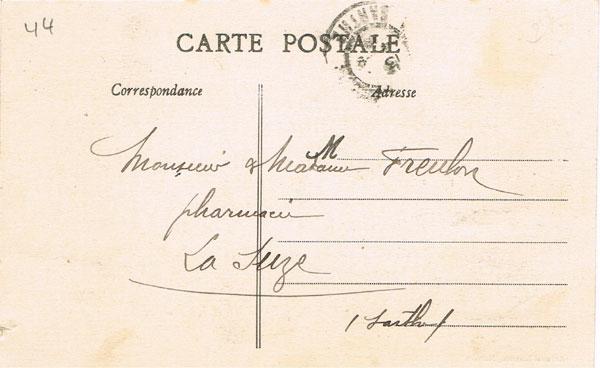 44
CARTE POSTALE
Correspondance
Adresse
M
Monsieur & Madame Freulon
pharmacien
La Suze
(Sarthe)